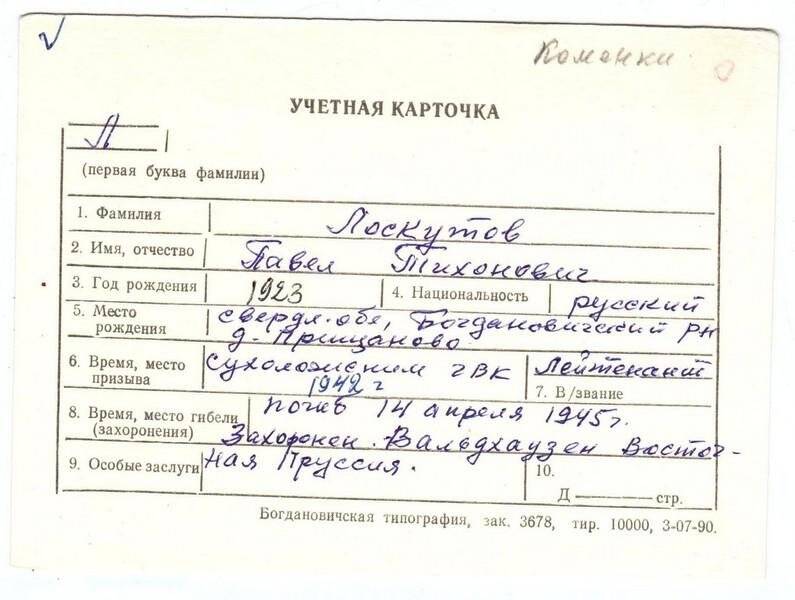 Каменки
УЧЕТНАЯ КАРТОЧКА
Л
(первая буква фамилии)
1. Фамилия Лоскутов
2. Имя, отчество Павел Тихонович
3. Год рождения 1923 4. Национальность русский
5. Место рождения свердл. обл, Богдановичский рн
д. Прищаново
6. Время, место призыва Сухоложским ГВК 1942 г Лейтенант
7. В/звание
8. Время, место гибели (захоронения) погиб 14 апреля 1945г.
Захоронен. Вальдхаузен Восточ-
9. Особые заслуги ная Пруссия. 10.
Д — стр.
Богдановичская типография, зак. 3678, тир. 10000, 3-07-90.